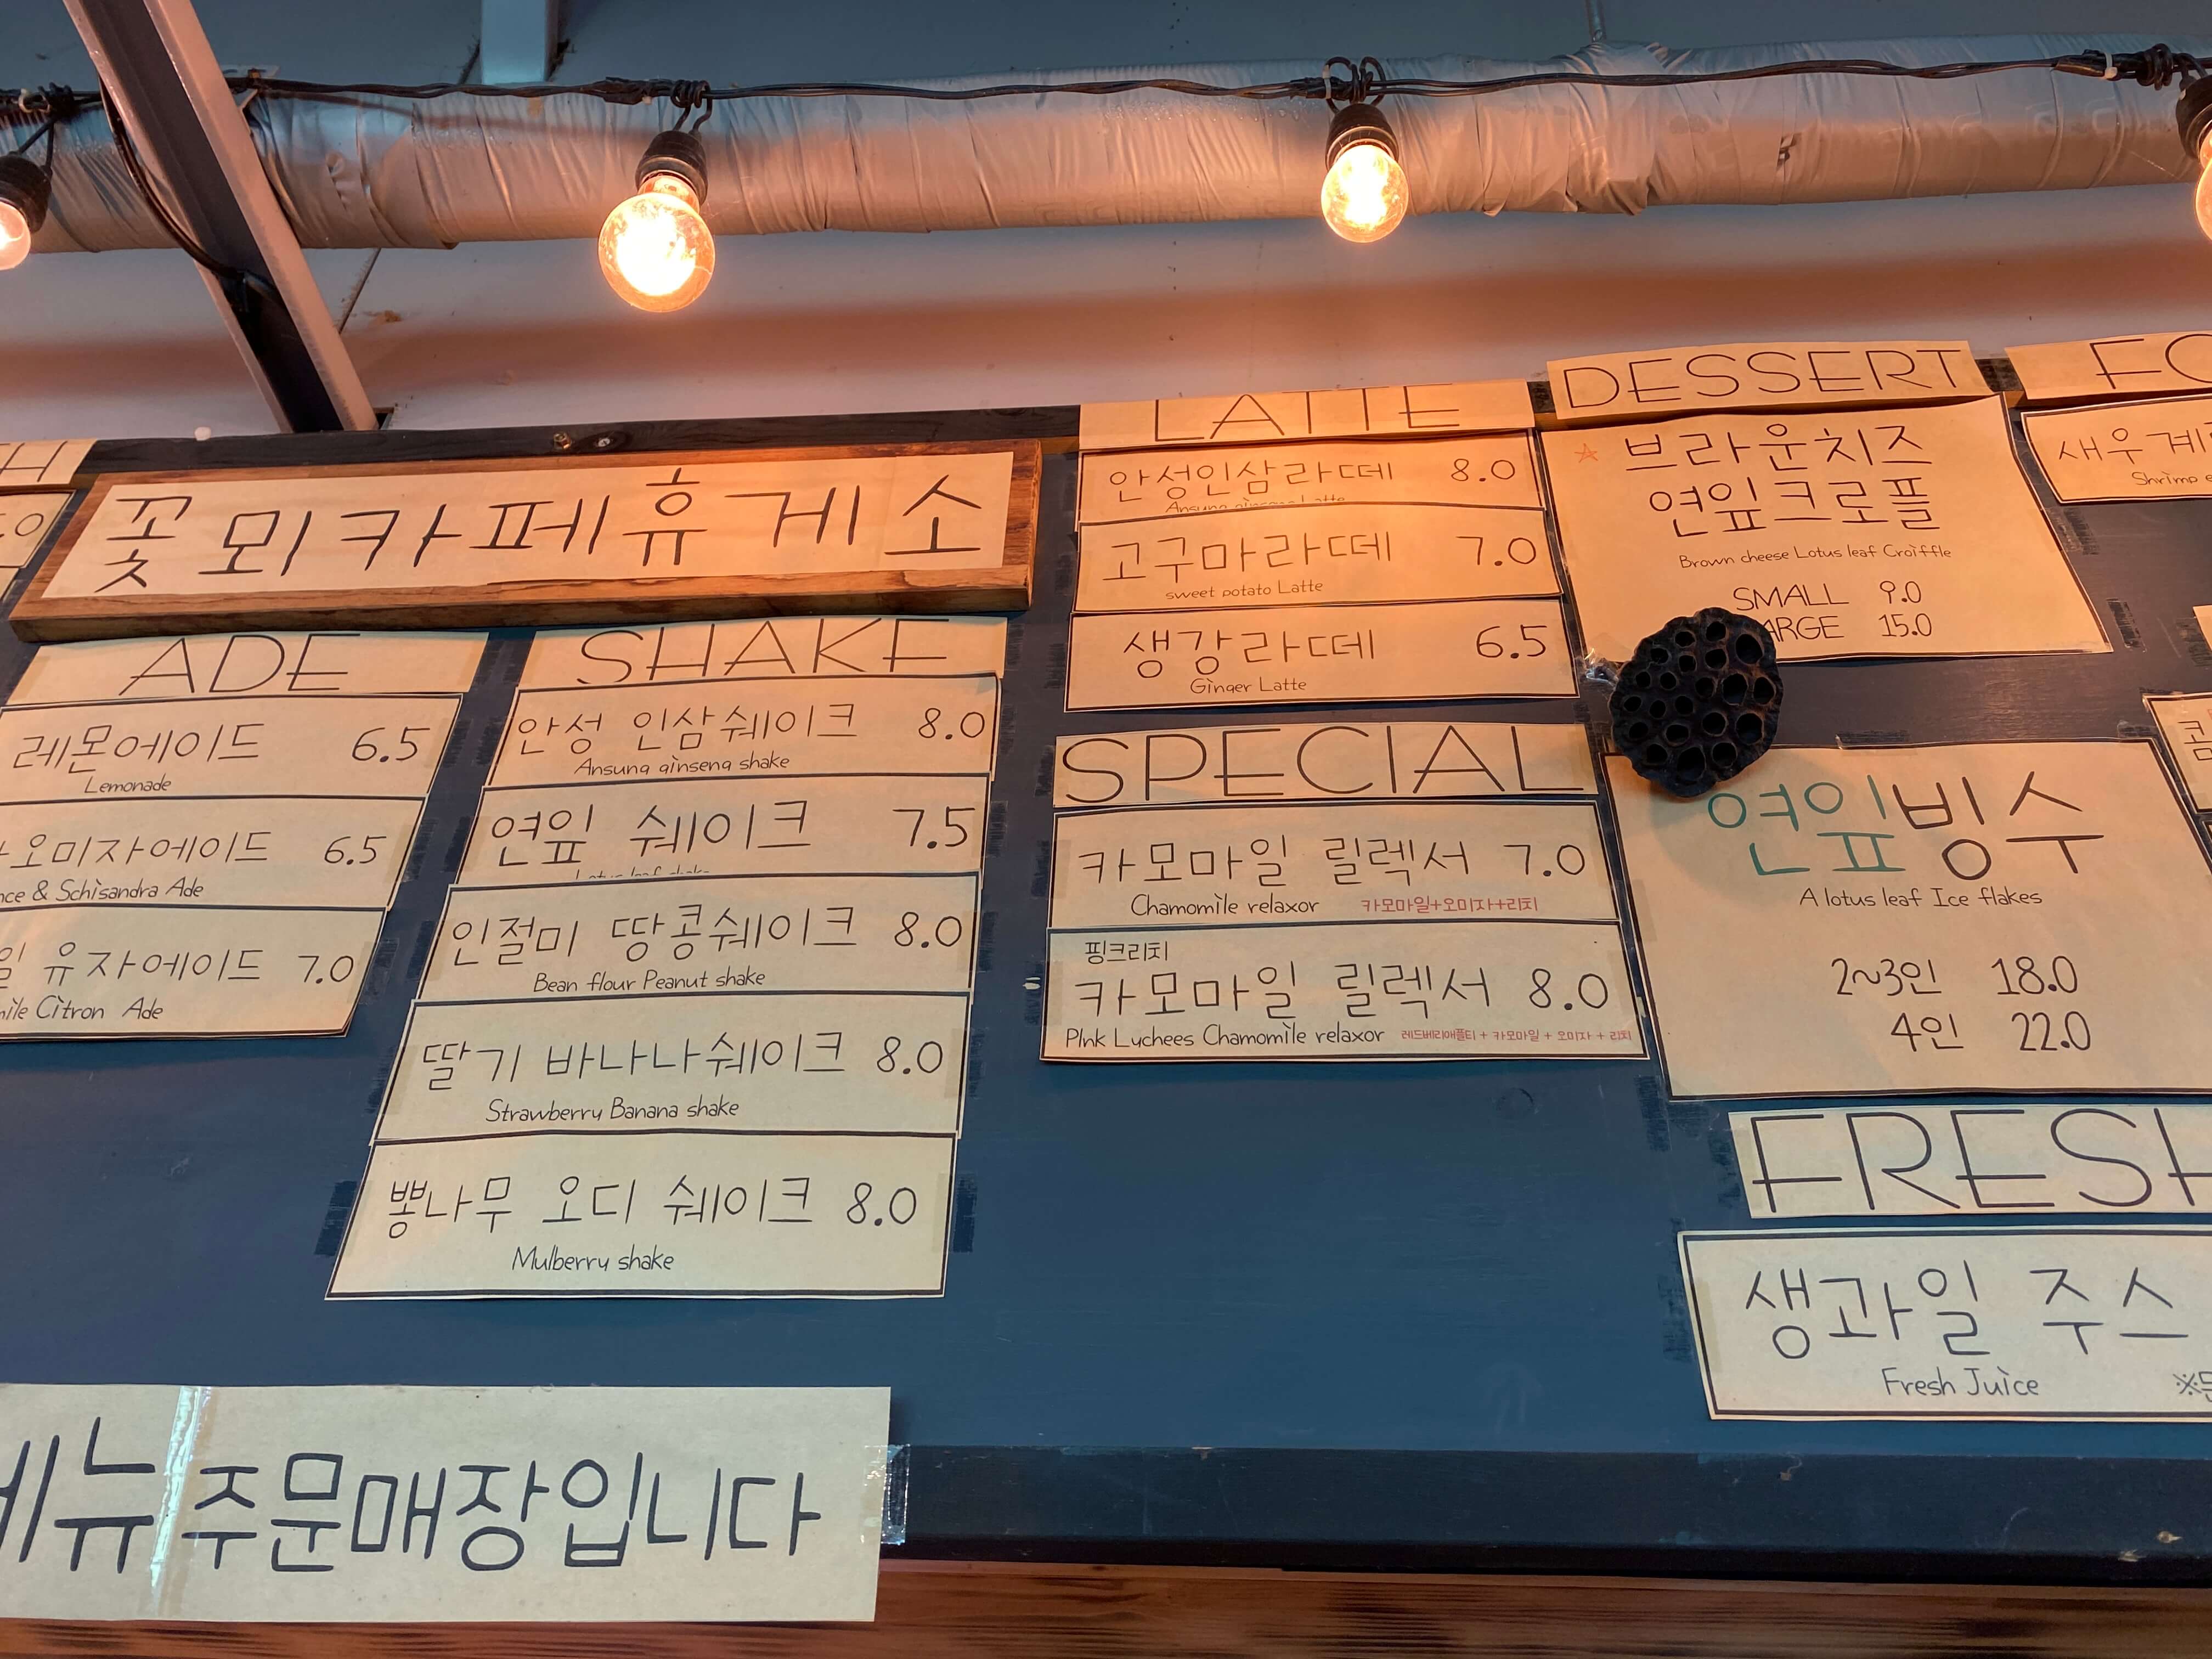 꽃뫼카페휴게소
ADE
레몬에이드 6.5
Lemonade
오미자에이드 6.5
& Schisandra Ade
유자에이드 7.0
Citron Ade
SHAKE
안성 인삼쉐이크 8.0
Ansung ginseng shake
연잎 쉐이크 7.5
Lotus leaf shake
인절미 땅콩쉐이크 8.0
Bean flour Peanut shake
딸기 바나나쉐이크 8.0
Strawberry Banana shake
뽕나무 오디 쉐이크 8.0
Mulberry shake
LATTE
안성인삼라떼 8.0
Ansung ginseng Latte
고구마라떼 7.0
sweet potato Latte
생강라떼 6.5
Ginger Latte
SPECIAL
카모마일 릴렉서 7.0
Chamomile relaxor 카모마일+오미자+리치
핑크리치
카모마일 릴렉서 8.0
PInk Luchees Chamomile relaxor 레드베리애플티 + 카모마일 + 오미자 + 리치
DESSERT
☆ 브라운치즈
연잎크로플
Brown cheese Lotus leaf Croiffle
SMALL 9.0
ARGE 15.0
연잎빙수
A lotus leaf Ice flakes
2~3인 18.0
4인 22.0
FRESH
생과일 주스
Fresh Juice
새우
Shrimp
메뉴주문매장입니다